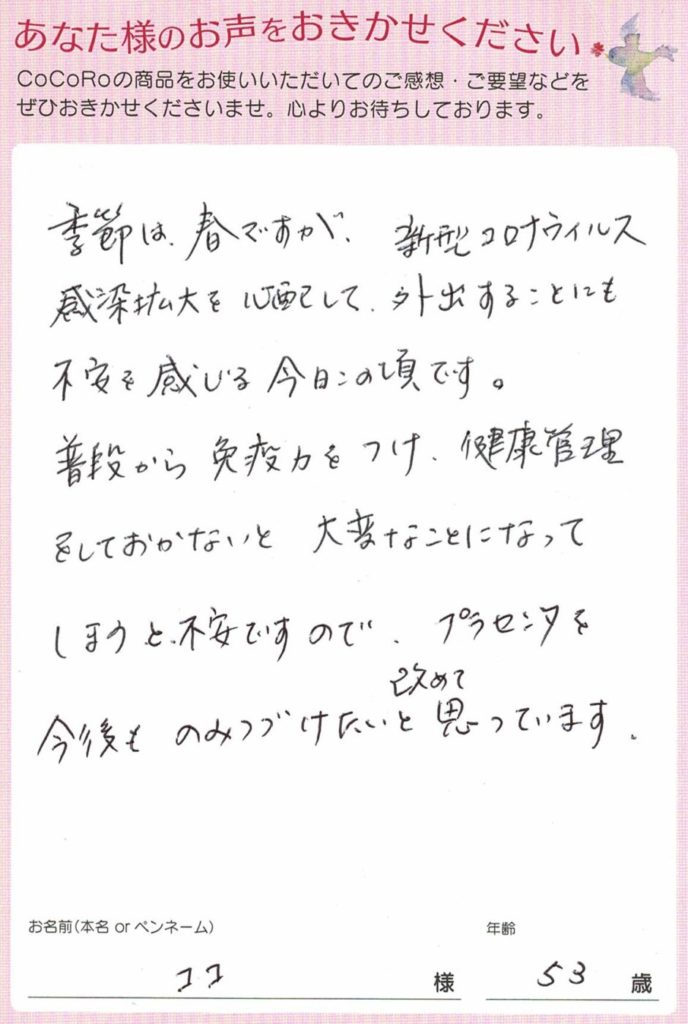 あなた様のお声をおきかせください
CoCoRoの商品をお使いいただいてのご感想・ご要望などを
ぜひおきかせくださいませ。心よりお待ちしております。
季節は、春ですが、新型コロナウィルス
感染拡大を心配して、外出することにも
不安を感じる今日この頃です。
普段から免疫力をつけ、健康管理
をしておかないと大変なことになって
しまうと、不安ですので、プラセンタを
改めて
今後ものみつづけたいと思っています。
お名前(本名 or ペンネーム)
年齢
ココ 様
53 歳